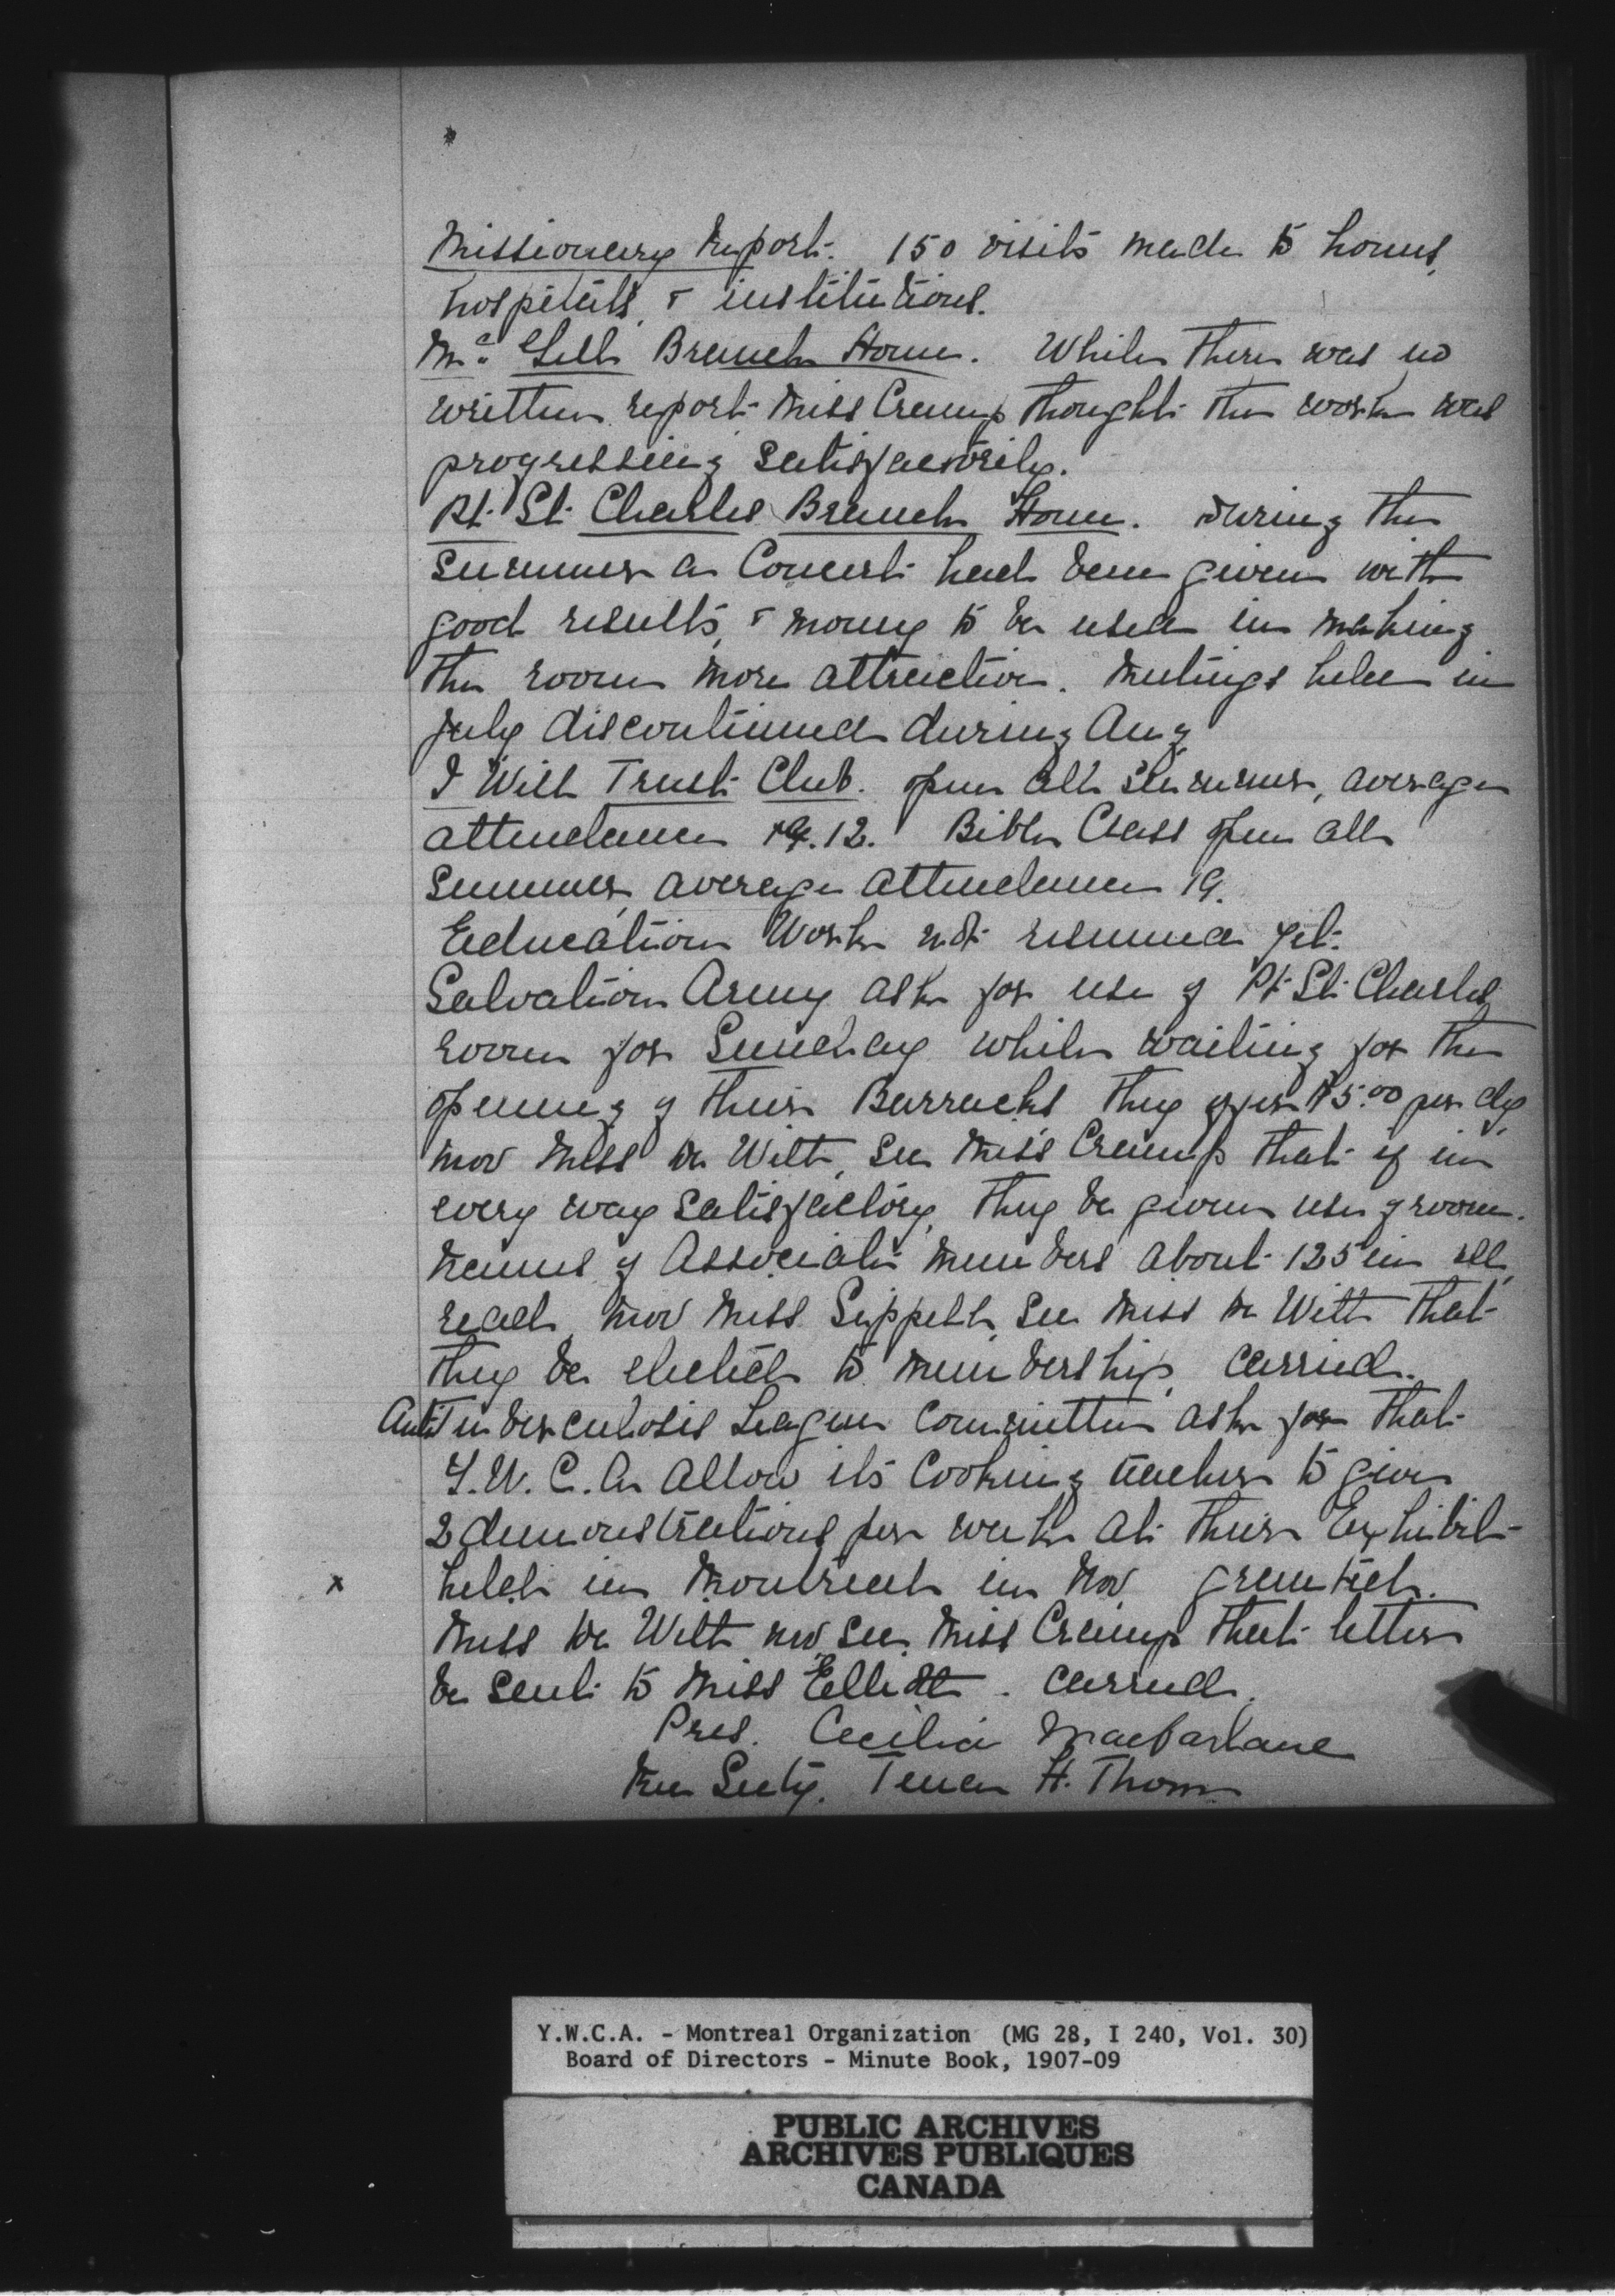 Missionary Report. 150 visits made to homes,
hospitals, & institutions.
Mc Gill Branch Home. While there was no
written report Miss Cramp thought the work was
progressing satisfactorily.
Pt. St. Charles Branch Home. During the
summer a Concert had been given with
good results, & money to be used in making
the room more attractive. Meetings held in
July discontinued during Aug.
I Will Trust Club. open all summer, average
attendance 12. Bible Class open all
summer, average attendance 19.
Education Work not resumed yet.
Salvation Army ask for use of Pt. St. Charles
room for Sunday while waiting for the
opening of their Barracks they offer $5.00 per dy.
mov Miss de Witt, sec Miss Cramp that if in
every way satisfactory, they be given use of room.
Names of Associate Members about 125 in all,
read, mov Miss Sippell, sec Miss de Witt that
they be elected to membership, carried.
Anti Tuberculosis League Committee ask for that
Y.W.C.A. allow its Cooking teacher to give
2 demonstrations per week at their Exhibit
held in Montreal in Nov granted.
x
Miss de Witt mov sec Miss Cramp that letter
be sent to Miss Elliott. carried.
Pres. Cecilia Macfarlane
Rec Secty. Tena H. Thom
Y.W.C.A. - Montreal Organization (MG 28, I 240, Vol. 30)
Board of Directors - Minute Book, 1907-09
PUBLIC ARCHIVES
ARCHIVES PUBLIQUES
CANADA